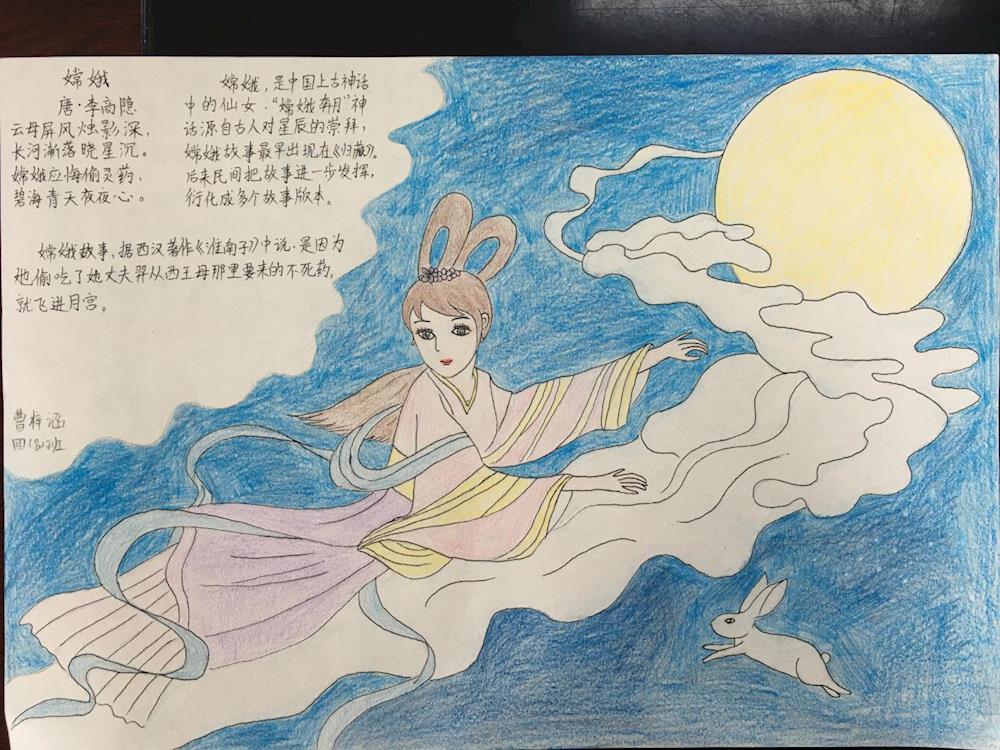 嫦娥
唐·李商隐
云母屏风烛影深，
长河渐落晓星沉。
嫦娥应悔偷灵药，
碧海青天夜夜心。
嫦娥，是中国上古神话
中的仙女。“嫦娥奔月”神
话源自古人对星辰的崇拜，
嫦娥故事最早出现在《归藏》。
后来民间把故事进一步发挥，
衍化成多个故事版本。
嫦娥故事，据西汉著作《淮南子》中说，是因为
她偷吃了她丈夫羿从西王母那里要来的不死药，
就飞进月宫。
曹梓涵
四
班